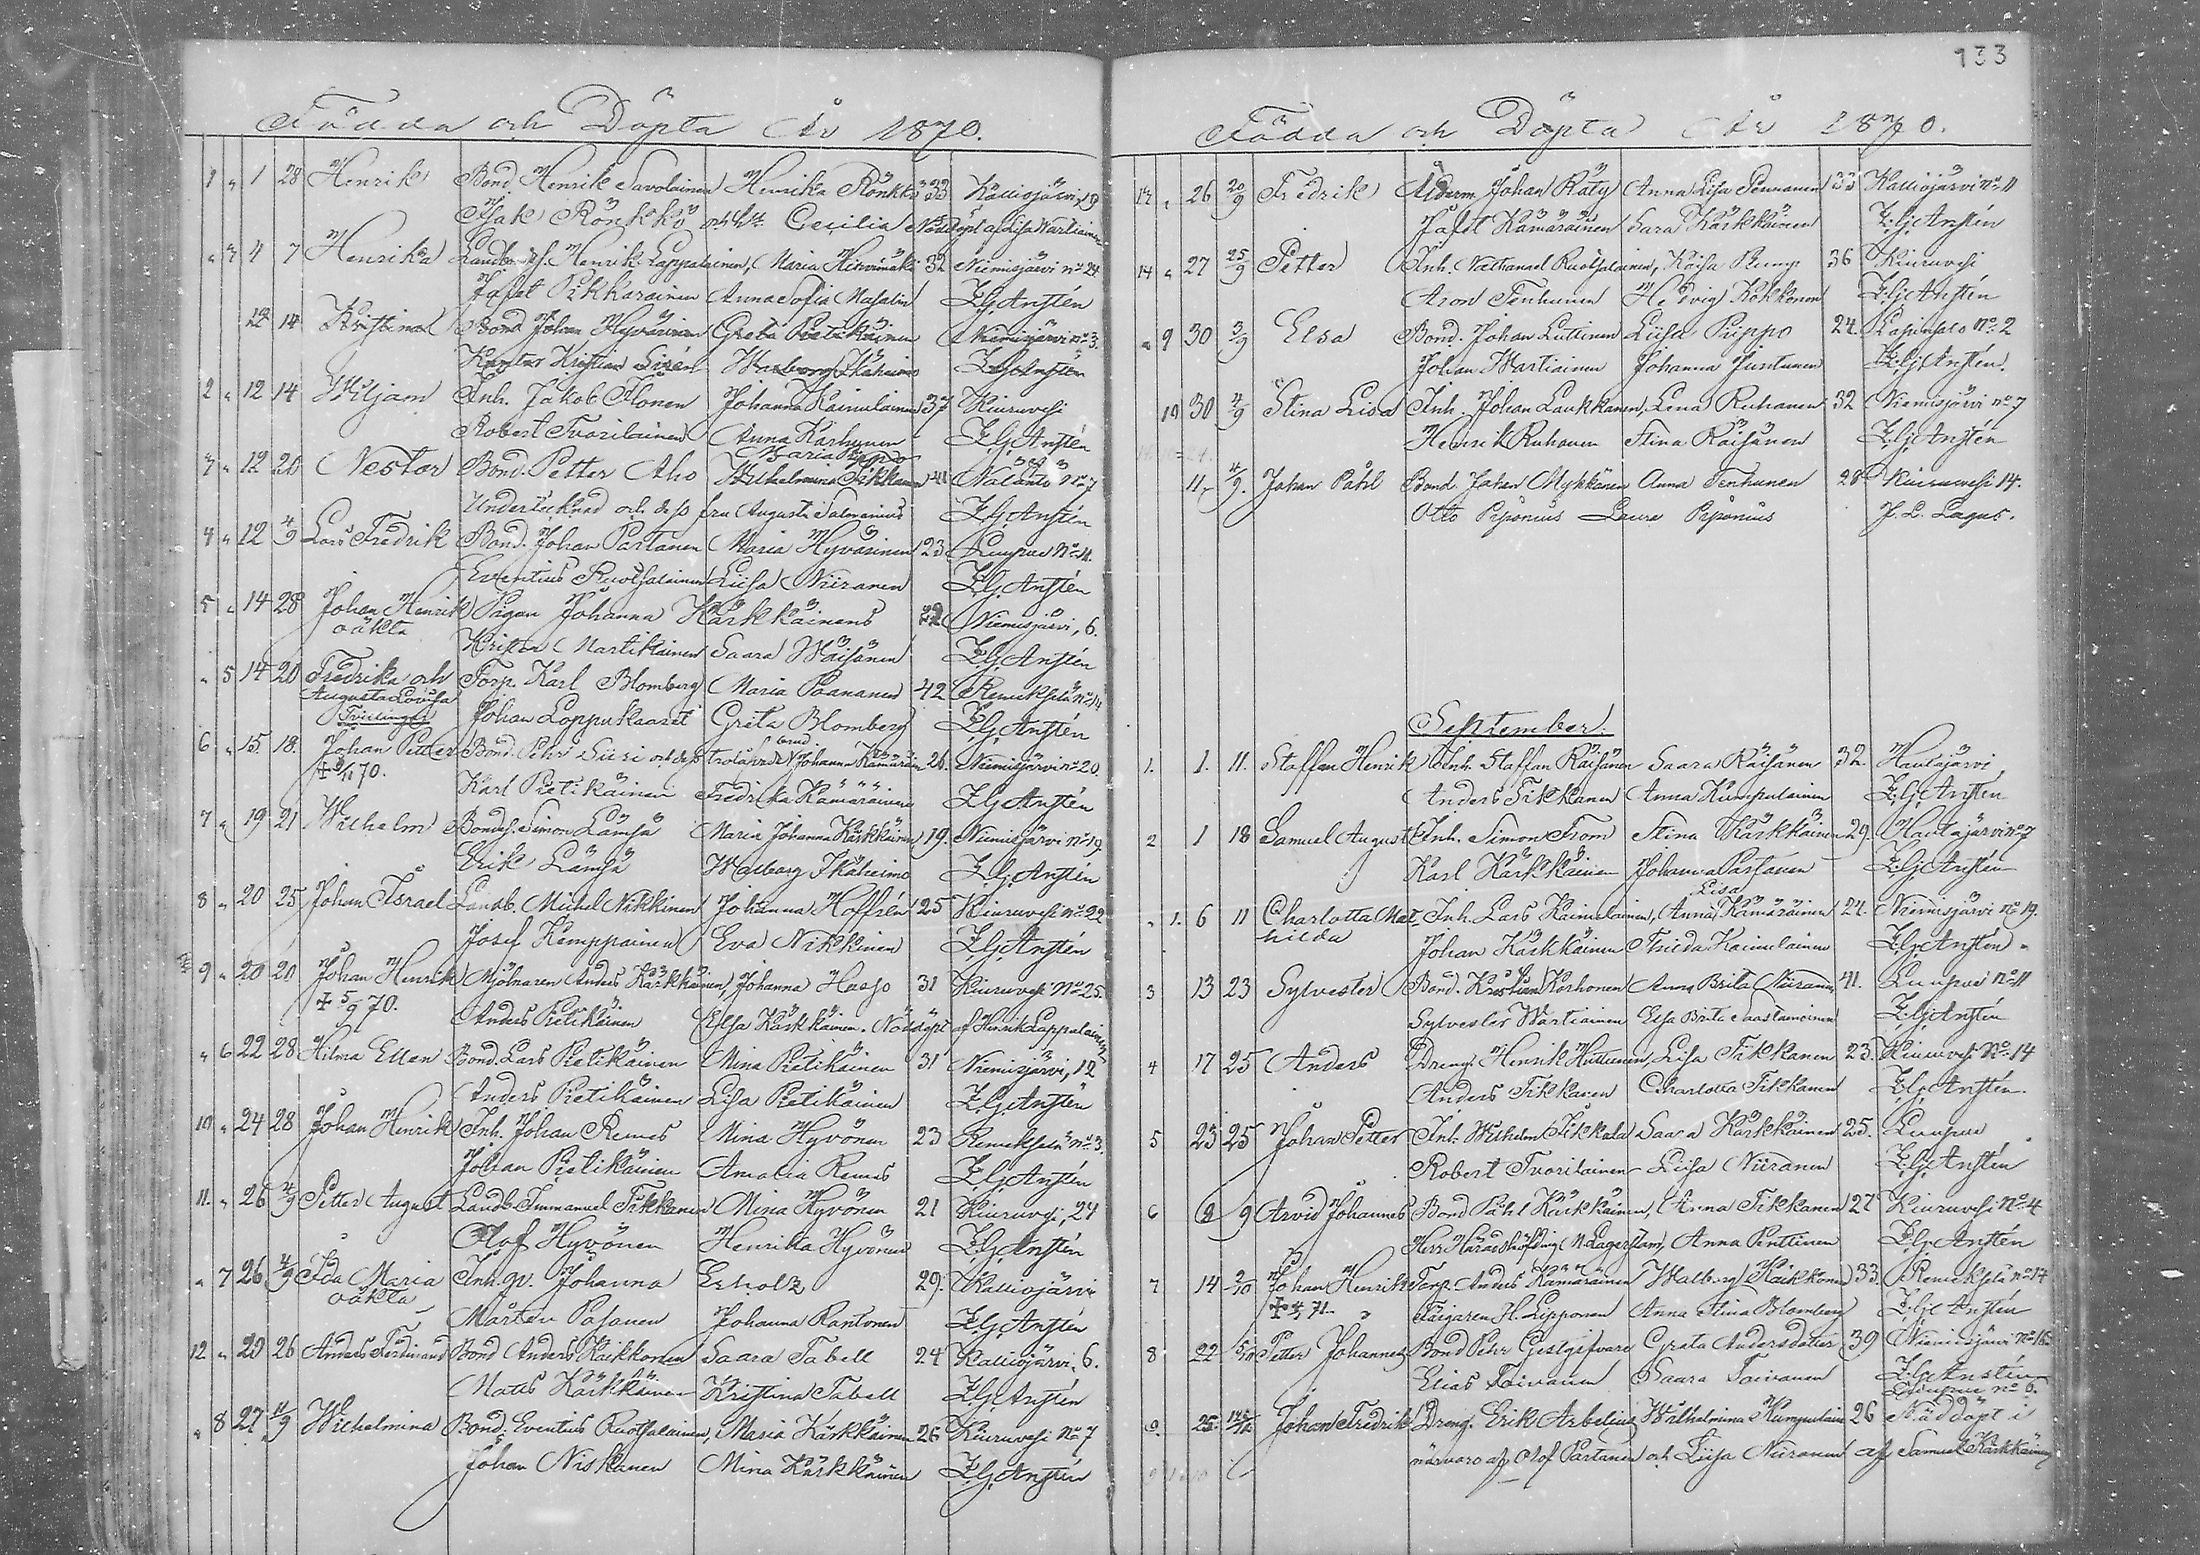 Födda och Döpta År 1870.
1 " 1 28 Henrik Bond. Henrik Savolainen Henrika Rönkkö 33 Kalliojärvi 19
Isak Rönkkö Cecilia Nöddöpt af Lisa Wartiainen
" 3 4 7 Henrika Landb. Henrik Lappalainen, Maria 32 Niemisjärvi no 24
Jafet Pikkarainen Anna Sofia Masalin Z. Gj. Anstén
12 14 Kristina Bond Johan Hyvärinen Greta Pietikäinen Niemisjärvi no 3.
Kantor Kristian Sirén Walborg Ikäheimo Z. Gj. Anstén
2 " 12 14 Wiljam Inh. Jakob Ilonen Johanna Kainulainen 37 Kiuruvesi
Robert Tvorilainen Anna Karhunen Z. Gj. Anstén
Maria Pippo
3 " 12 20 Nestor Bond. Petter Aho Wilhelmina Tikkanen 41 Nälänto No 7
Undertecknad och dess fru Augusta Salmenius Z. Gj. Anstén
4 " 12 4/9 Lars Fredrik Bond. Johan Partanen Maria Hyvärinen 23 Luupue No 11.
Eventius Ruotsalainen Liisa Niiranen Z. Gj. Anstén
5 " 14 28 Johan Henrik Pigan Johanna Kärkkäinens 22 Niemisjärvi, 6.
oäkta
Krister Martikainen Saara Wäisänen Z. Gj. Anstén
" 5 14 20 Fredrika och Torp. Karl Blomberg Maria Paananen 42 Remeksela no 14
Augusta Lovisa
Tvillingar Johan Loppukaaret Greta Blomberg Z. Gj. Anstén
6 " 15 18. Johan Petter Bond. Pehr Siiri och dess trolofvade brud Johanna Kämäräin 26. Niemisjärvi no 20.
+ 3/11 70.
Karl Pietikäinen Fredrika Kämäräinen Z. Gj. Anstén
7 " 19 21 Wilhelm Bondes. Simon Lämsä Maria Johanna Kärkkäinen 19. Niemisjärvi no 19
Erik Lämsä Walborg Ikäheimo Z. Gj. Anstén
8 " 20 25 Johan Israel Landb. Michel Nikkinen Johanna Hoffrén 25 Kiuruvesi no 22
Josef Kemppainen Eva Nikkinen Z. Gj. Anstén
9 " 20 20 Johan Henrik Mjölnaren Anders Kärkkäinen, Johanna Haajo 31 Kiuruvesi No 25.
+ 5/9 70.
Anders Pietikäinen Elsa Kärkkäinen. Nöddöpt af Henrik Lappalainen
" 6 22 28 Hilma Ellen Bond. Lars Pietikäinen Mina Pietikäinen 31 Niemisjärvi, 12
Anders Pietikäinen Lisa Pietikäinen Z. Gj. Anstén
10 " 24 28 Johan Henrik Inh. Johan Remes Mina Hyvönen 23 Remeksela no 3.
Johan Pietikäinen Amalia Remes Z. Gj. Anstén
11. " 26 4/9 Petter August Landb. Immanuel Tikkanen Mina Hyvönen 21 Kiuruvesi, 24
Olof Hyvönen Henrika Hyvönen Z. Gj. Anstén
" 7 26 4/9 Ida Maria Inh. qv. Johanna Erholtz 29. Kalliojärvi
oäkta
Mårten Pasanen Johanna Rantonen Z. Gj. Anstén
12 " 20 26 Anders Ferdinand Bond Anders Kärkkonen Saara Tabell 24 Kalliojärvi 6.
Mats Kärkkäinen Kristina Tabell Z. Gj. Anstén
" 8 27 11/9 Wilhelmina Bond. Eventius Ruotsalainen, Maria Kärkkäinen 26 Kiuruvesi No 7
Johan Niskanen Mina Kärkkäinen Z. Gj. Anstén
133
Födda och Döpta År 1870.
13 " 26 20/9 Fredrik Ålderm. Johan Räty Anna Lisa Pennanen 33 Kalliojärvi no 11
Jafet Kämäräinen Sara Kärkkäinen Z. Gj. Anstén
14 " 27 25/9 Petter Inh. Nathanael Ruotsalainen, Kaisa Rump 36 Kiuruvesi
Aron Tenhunen Hedvig Kokkonen Z. Gj. Anstén
" 9 30 3/9 Elsa Bond. Johan Luttinen Liisa Pippo 24. Lapinsalo No 2
Johan Wartiainen Johanna Juntunen Z. Gj. Anstén.
10 30 4/9 Stina Lisa Inh. Johan Laukkanen, Lena Ruhanen 32 Niemisjärvi no 7
Henrik Ruhanen Stina Räisänen Z. Gj. Anstén
11 4/9. Johan Påhl Bond Johan Mykkänen Anna Tenhunen 28 Kiuruvesi 14.
Otto Piponius Laura Piponius J. L. Lagus.
September.
1. 1. 11. Staffan Henrik Inh. Staffan Räisänen Saara Räisänen 32. Hautajärvi
Anders Tikkanen Anna Kumpulainen Z. Gj. Anstén
2 1 18 Samuel August Inh. Simon From Stina Kärkkäinen 29. Hautajärvi no 7
Karl Kärkkäinen Johanna Partanen Z. Gj. Anstén
" 1. 6 11 Charlotta Mat- Inh. Lars Kainulainen, Anna Lisa Kämäräinen 24. Niemisjärvi no 19.
hilda Johan Kärkkäinen Thilda Kainulainen Z. Gj. Anstén
3 13 23 Sylvester Bond. Kristian Korhonen Anna Brita Niiranen 41. Luupue no 11
Sylvester Wartiainen Elsa Brita Saastamoinen Z. Gj. Anstén
4 17 25 Anders Dreng. Henrik Huttunen, Lisa Tikkanen 23. Kiuruvesi No 14
Anders Tikkanen Charlotta Tikkanen Z. Gj. Anstén
5 23 25 Johan Petter Inh. Wilhelm Tikkala Saara Kärkkäinen 25. Luupue
Robert Tvorilainen Liisa Niiranen Z. Gj. Anstén
6 8 9 Arvid Johannes Bond Påhl Kärkkäinen, Anna Tikkanen 27 Kiuruvesi No 4
Herr Häradshöfding N. Lagerstam, Anna Penttinen Z. Gj. Anstén
7 14 2/10 Johan Henrik Torp. Anders Kämäräinen Walborg Kärkkonen 33. Remeksela no 14
71. H. Lipponen Anna Stina Blomberg Z. Gj. Anstén
8 22 5/10 Petter Johannes Bond Pehr Gestgifvare Greta Andersdotter 39 Niemisjärvi No 16
Elias Toivanen Saara Toivanen Z. Gj. Anstén
Luupue no 6.
9. 25 Johan Fredrik Dreng. Erik Arbelius Wilhelmina Kumpulain 26 Nöddöpt i
närvaro af Olof Partanen och Liisa Niiranen af Samuel Kärkkäinen